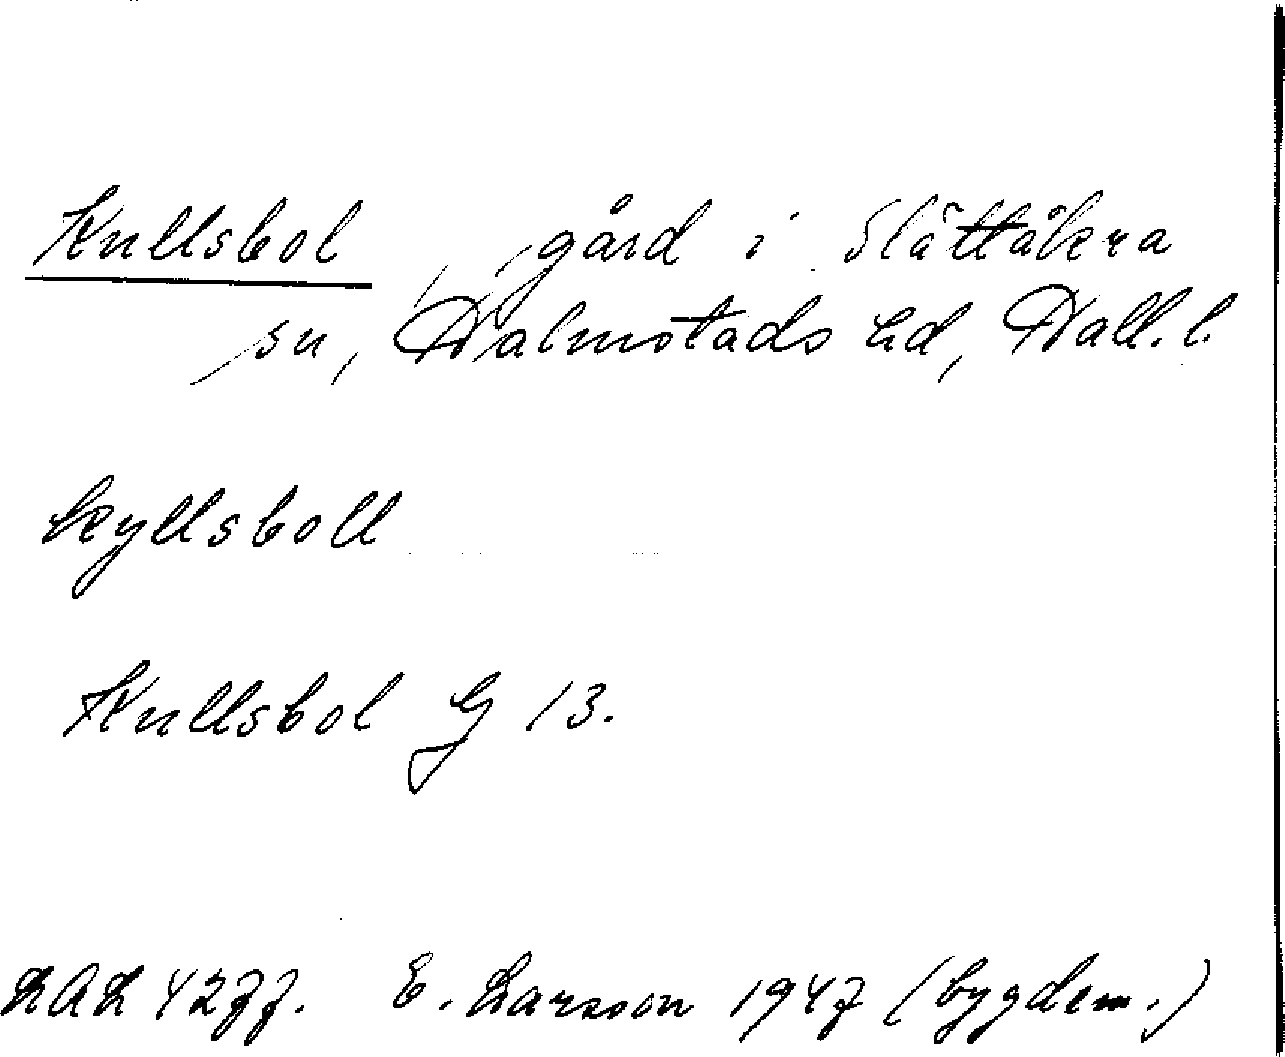 Kullsbol, gård i Slättåkra
sn, Halmstads hd, Hall. l.
kyllsboll
Kullsbol G 13.
LAL 4277. E. Larsson 1947 (bygdem.)